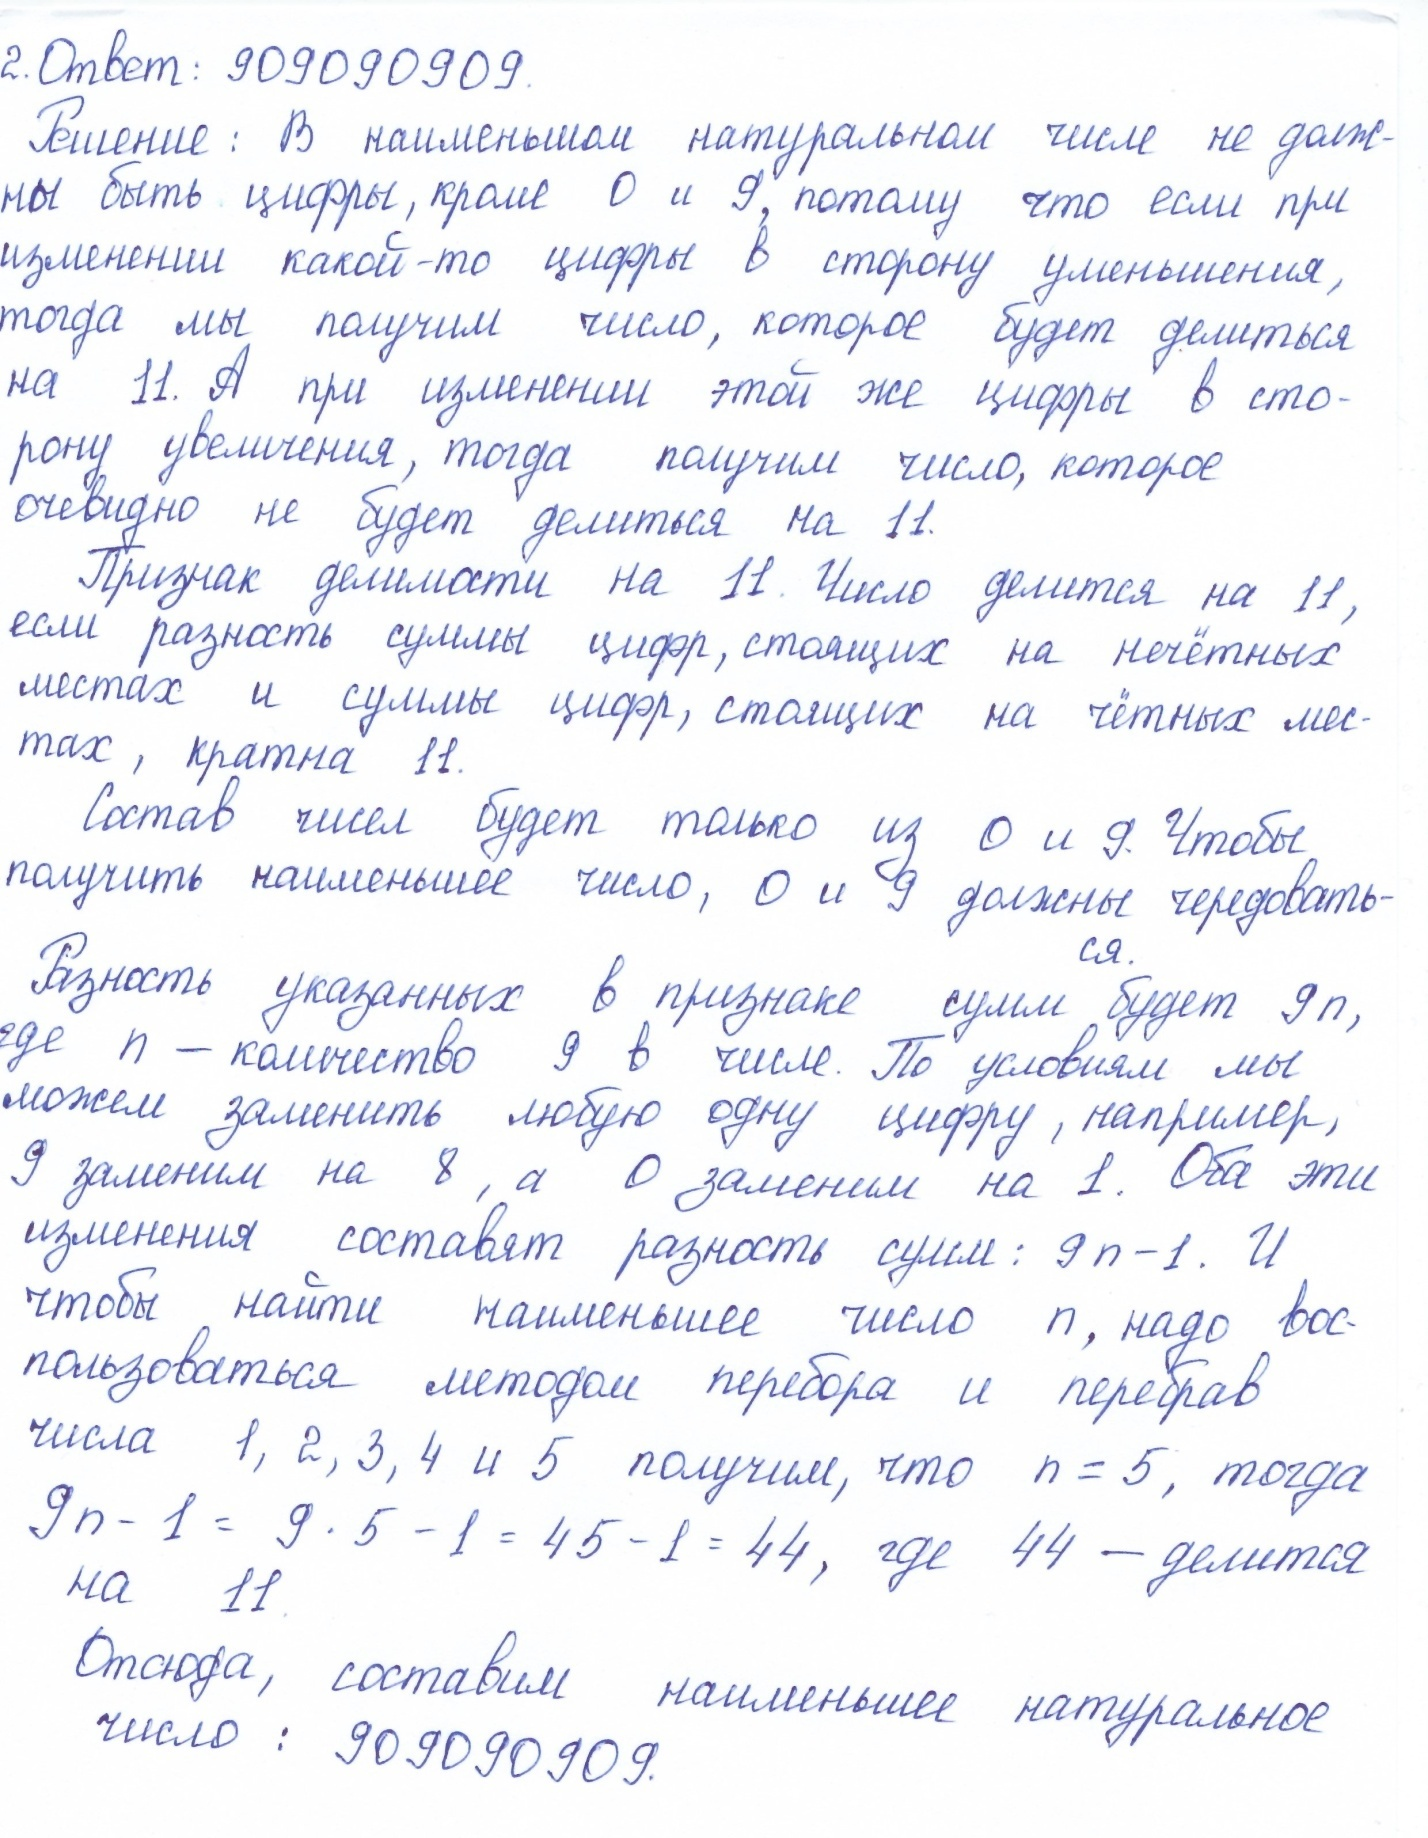 2. Ответ: 909090909.
Решение: В наименьшом натуральном числе не долж-
ны быть цифры, кроме 0 и 9, потому что если при
изменении какой-то цифры в сторону уменьшения,
тогда мы получим число, которое будет делиться
на 11. А при изменении этой же цифры в сто-
рону увеличения, тогда получим число, которое
очевидно не будет делиться на 11.
Признак делимости на 11. Число делится на 11,
если разность суммы цифр, стоящих на нечётных
местах и суммы цифр, стоящих на чётных мес-
тах, кратна 11.
Состав чисел будет только из 0 и 9. Чтобы
получить наименьшее число, 0 и 9 должны чередовать-
ся.
Разность указанных в признаке сумм будет 9n,
где n – количество 9 в числе. По условиям мы
можем заменить любую одну цифру, например,
9 заменим на 8, а 0 заменим на 1. Оба эти
изменения составят разность сумм: 9n-1. И
чтобы найти наименьшее число n, надо вос-
пользоваться методом перебора и перебрав
числа 1, 2, 3, 4 и 5 получим, что n = 5, тогда
9n - 1 = 9 · 5 - 1 = 45 - 1 = 44, где 44 – делится
на 11.
Отсюда, составим наименьшее натуральное
число : 909090909.